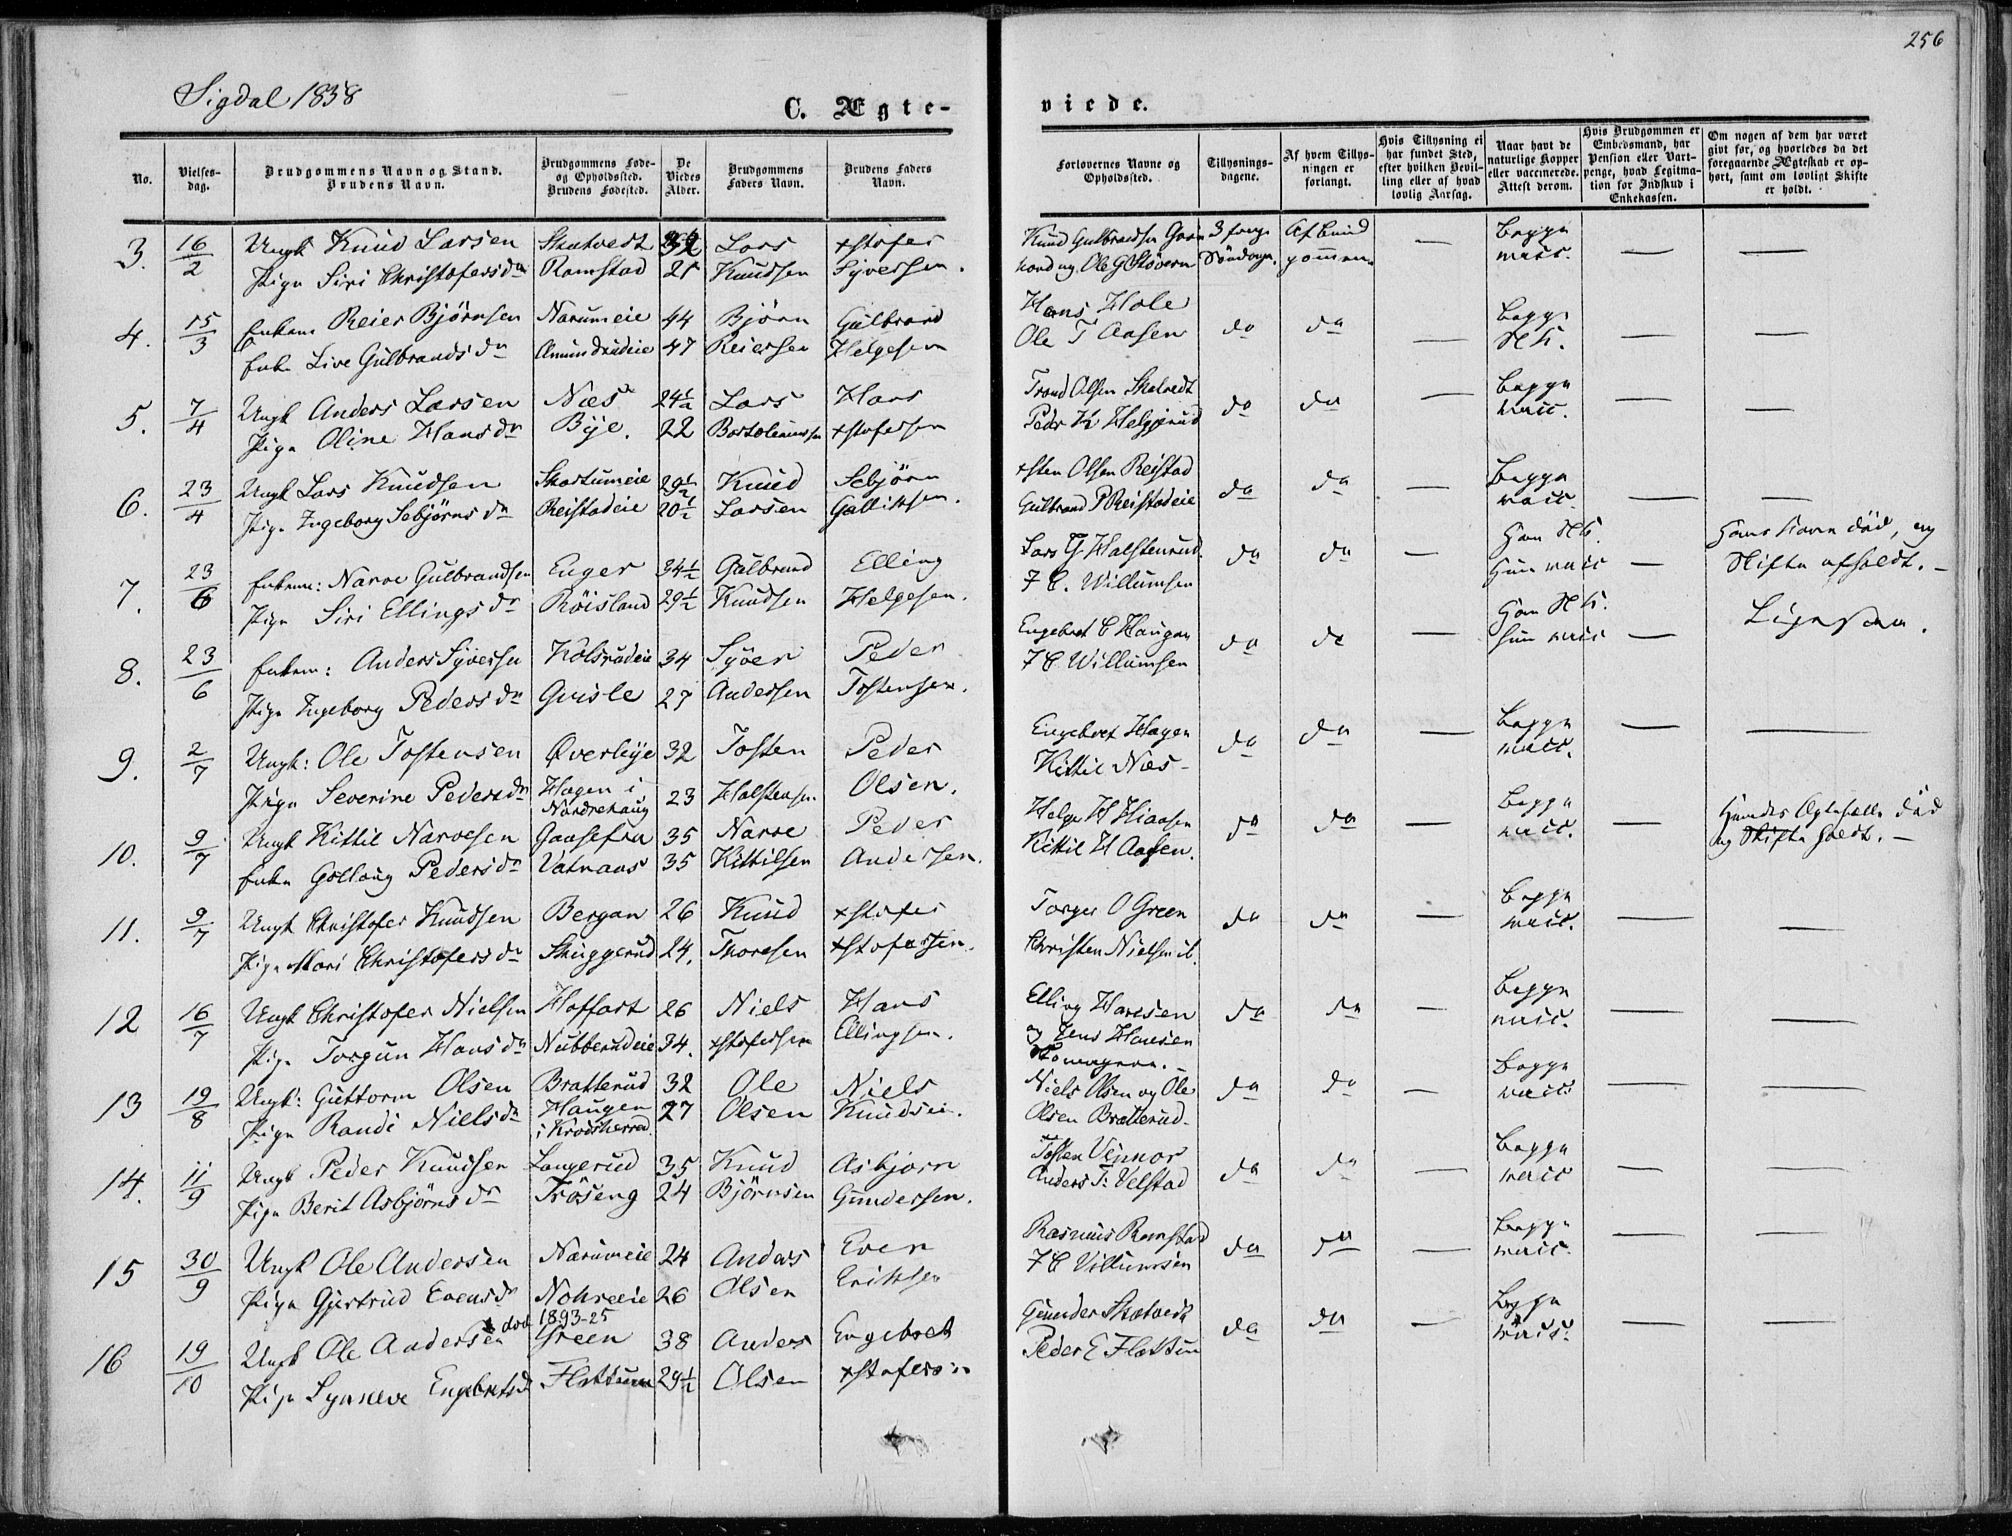 256
Sigdal 1858
C. Ægte-
viede.
No.
Vielses-
dag.
Brudgommens Navn og Stand.
Brudens Navn.
Brudgommens Føde-
og Opholdssted.
Brudens Fødested.
De
Viedes
Alder.
Brudgommens
Faders Navn.
Brudens Faders
Navn.
Forlovernes Navne og
Opholdssted.
Tillysnings-
dagene.
Af hvem Tillys-
ningen er
forlangt.
Hvis Tillysning ei
har fundet Sted,
efter hvilken Bevil-
ling eller af hvad
lovlig Aarsag.
Naar havt de
naturlige Kopper
eller vaccinerede.
Attest derom.
Hvis Brudgommen er
Embedsmand, har
Pension eller Vart-
penge, hvad Legitima-
tion for Indskud i
Enkekassen.
Om nogen af dem har været
givt før, og hvorledes da det
foregaaende Ægteskab er op-
hørt, samt om lovligt Skifte
er holdt.
3. 16/2 Ungk Knud Larsen Skatvedt 32 Lars xstofer
Pige Siri Christofersdr Ramstad 21 Knudsen Syversen.
Knud Gulbrandsen 3 forrige Af Brud — Begge — —
og Ole G Støvern Søndage. gommen vacc.
4. 15/3 Enkem Reier Bjørnsen Narumeie 44 Bjørn Gulbrand
Enke Live Gulbrandsdr Amundrudeie 47 Reiersen Helgesen
Hans Hole do do — Begge — —
Ole T Aasen N K.
5. 7/4 Ungk Anders Larsen Næs 24½ Lars Hans
Pige Oline Hansdr Bye. 22 Bartolinussen xstofersen
Trond Olsen Skatvedt do do — Begge — —
Peder K Helgerud vacc.
6. 23/4 Ungk Lars Knudsen Skartumeie 29½ Knud Sebjørn
Pige Ingeborg Sebjørnsdr Reistadeie 20½ Larsen Gulliksen.
xsten Olsen Reistad do do — Begge — —
Gulbrand P Reistadeie vacc.
7. 23/6 Enkem: Narve Gulbrandsen Enger 34½ Gulbrand Elling
Pige Siri Ellingsdr Røisland 29½ Knudsen Helgesen.
Lars G Halstenrud do do — Han N K. — Hans Kone död, og
F C. Willumsen Hun vacc Skifte afholdt. —
8. 23/6 Enkem: Anders Syversen Kolsrudeie 34 Syver Peder
Pige Ingeborg Pedersdr Grisle 27 Andersen Tostensen.
Engebret C Haugan do do — Han N K. — Ligesaa.
F C Willumsen Hun vacc
9. 2/7 Ungk: Ole Tostensen Øverbye 32 Tosten Peder
Pige Severine Pedersdr Hagen i
Nordrehaug 23 Halstensen Olsen.
Engebret Hagen do do — Begge — —
Kittil Næs — vacc.
10. 9/7 Ungk Kittil Narvesen Gaasefra 35 Narve Peder
Enke Gollaug Pedersdr Vatnaas 35 Kittilsen Andersen.
Helge H Hiaasen do do — Begge — Hendes Ægtefælle död
Kittil H Aasen. vacc. og Skifte holdt. —
11. 9/7 Ungk Christofer Knudsen Bergan 26 Knud xstofer
Pige Mari Christofersdr Skuggerud 24. Thoresen xstofersen.
Torger O Green do do — Begge — —
Christen Nielsen ib. vacc.
12 16/7 Ungk Christofer Nielsen Hoffart 26 Niels Hans
Pige Torgun Hansdr Nubberudeie 34. xstofersen Ellingsen.
Elling Hansen do do — Begge — —
og Jens Hansen vacc.
13 19/8 Ungk: Guttorm Olsen Bratterud 32 Ole Niels
Pige Randi Nielsdr Haugen
i Krødsherred. 27 Olsen Knudsen.
Niels Olsen og Ole do do — Begge — —
Olsen Bratterud. vacc
14. 11/9 Ungk Peder Knudsen Langerud 35 Knud Asbjørn
Pige Berit Asbjørnsdr Trøseng 24 Bjørnsen Gundersen.
Tosten Vennor do do — Begge — —
Anders T. Velstad vacc
15 30/9 Ungk Ole Andersen Narumeie 24 Anders Even
Pige Gjertrud Evensdr Nohreeie 26 Olsen Eriksen
Rasmus Ramstad do do — Begge — —
F C Villumsen vacc.
död 1893-25
16 19/10 Ungk Ole Andersen Green 38 Anders Engebret
Pige Synneve Engebretsdr Flattum 29½ Olsen xstofersen
Gunder Skatvedt do do — Begge — —
Peder E Flattum vacc.